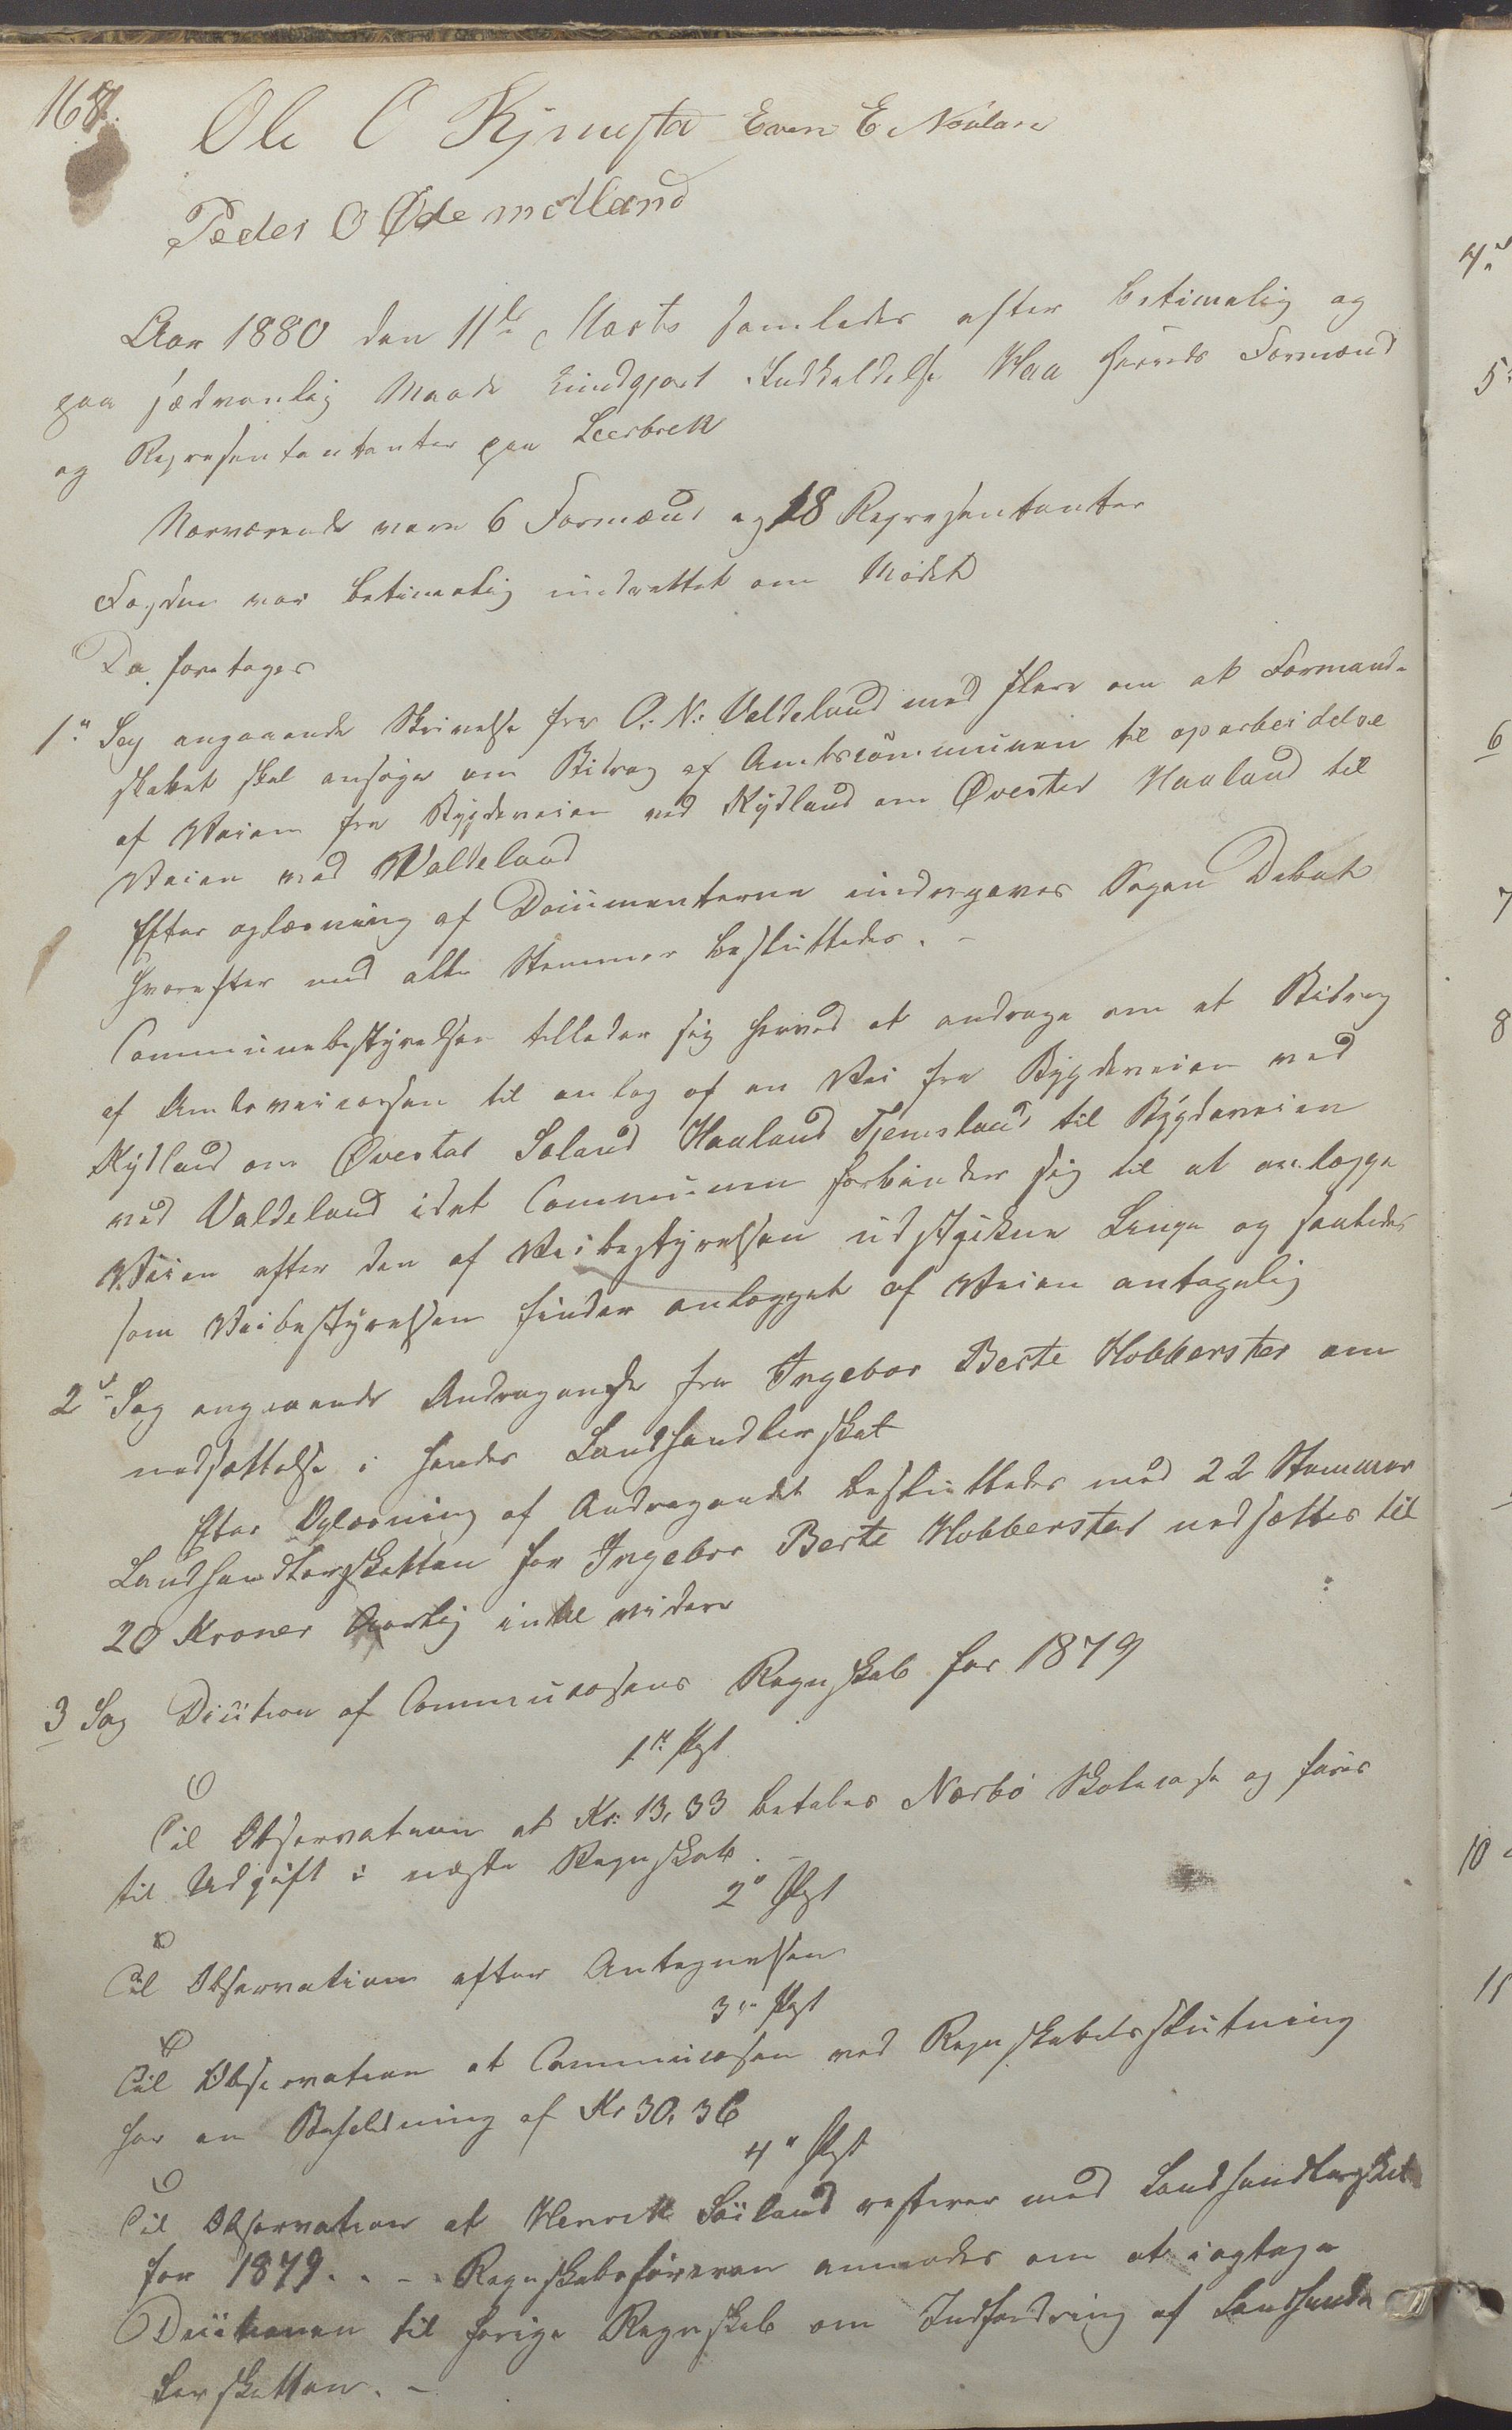 168.
Ole O Even E. Nöulan
Peder O Ødemolland
Aar 1880 den 11te Marts samledes efter betimelig og
paa sædvanlig Maade kundgjort Indkaldelse Haa Herreds Formænd
og Repræsentantanter paa Leerbrek
Nærværende vare 6 Formænd og 18 Repræsentanter
Fogden var betimelig undrettet om Mödet
Da foretages
1" Sag angaaende Skrivelse fra O. N. Valdeland med flere om at Formand-
skabet skal ansøge om Bidrag af Amtscommunen til oparbeidelse
af Veien fra Bygdeveien ved Kydland om Øvested Haaland til
Veien ved Valdeland
Efter oplæsning af Documenterne undergaves Sagen Debat
hvorefter med alle Stemmer besluttedes. -
Communebestyrelsen tillader sig herved at andrage om at Bidrag
af Amtsveicassen til anlæg af en Vei fra Bygdeveien ved
Kydland om Øvestad Soland Haaland Tjemsland til Bygdeveien
ved Valdeland idet Communen forbinder sig til at anlægge
Veien efter den af Veibestyrelsen udstykne Linge og saaledes
som Veibestyrelsen finder anlægget af Veien antagelig
2d Sag angaaende Andragende fra Ingebor Berte Hobberstad om
nedsættelse i hendes Landhandlerskat
Efter Oplæsning af Andragendet besluttedes med 22 Stemmer
Landhandlerskatten for Ingebor Berte Hobberstad nedsættes til
20 Kroner Aarlig indtil videre
3 Sag Diition af Communcassens Regnskab for 1879
1st Pst
Til Observation at Kr: 13,33 betales Nærbö Skolecasse og föres
til Udgift i næste Regnskab. -
2" Pst
Til Observation efter Antegnelsen
3" Pst
Til Observation at Communcassen ved Regnskabets slutning
har en Beholdning af Kr 30,36
4" Pst
Til Observation at Henrik Söiland resterer med Landhandlerskat
for 1879. . - . Regnskabsføreren anmodes om at iagtage
Diitionen til forige Regnskab om Indfordring af Landhand
lerskatten. -
4d
5
6
7
8
10
11